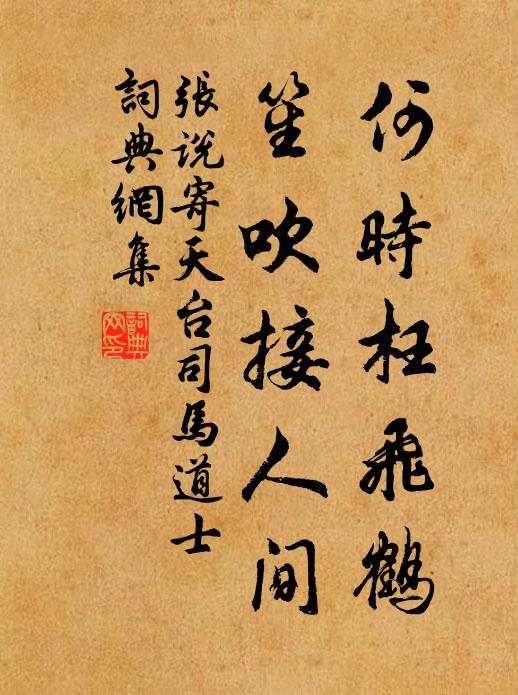 何時枉飛鶴
笙吹接人间
張说寄天台司馬道士
詞典網集
詞典网印